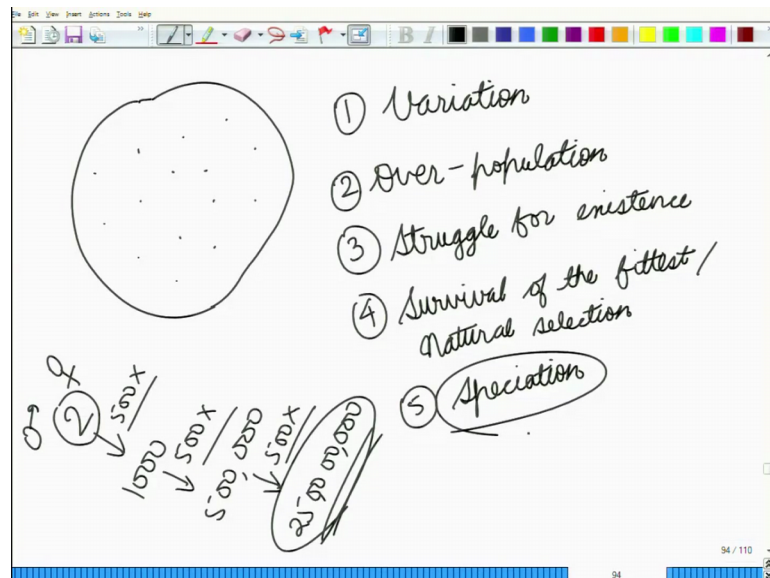 File Edit View Insert Actions Tools Help
① Variation
② Over-population
③ Struggle for existence
④ Survival of the fittest/
Natural selection
⑤ Speciation
♀
♂ 2
500X
1000
500X
500,000
500X
25,00,00,000
94 / 110
94